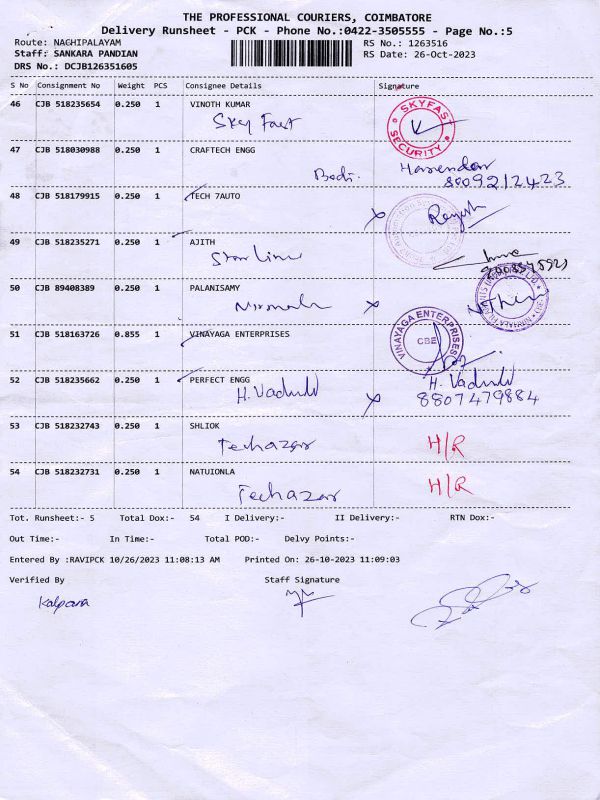 THE PROFESSIONAL COURIERS, COIMBATORE
Delivery Runsheet - PCK - Phone No.:0422-3505555 - Page No.:5
Route: NACHIPALAYAM RS No.: 1263516
Staff: SANKARA PANDIAN RS Date: 26-Oct-2023
DRS No.: DCJB126351605
S No Consignment No Weight PCS Consignee Details Signature
46 CJB 518235654 0.250 1 VINOTH KUMAR
Sky Fast SKYFAST SECURITY
47 CJB 518030988 0.250 1 CRAFTECH ENGG
Harender
8009212423
48 CJB 518179915 0.250 1 TECH 7AUTO
Rajesh
49 CJB 518235271 0.250 1 AJITH
Star Line
50 CJB 89408389 0.250 1 PALANISAMY
Nirmala
51 CJB 518163726 0.855 1 VINAYAGA ENTERPRISES
VINAYAGA ENTERPRISES CBE
52 CJB 518235662 0.250 1 PERFECT ENGG
H. Vadivel H. Vadivel
8807479884
53 CJB 518232743 0.250 1 SHLIOK
Techazar H/R
54 CJB 518232731 0.250 1 NATUIONLA
Techazar H/R
Tot. Runsheet:- 5 Total Dox:- 54 I Delivery:- II Delivery:- RTN Dox:-
Out Time:- In Time:- Total POD:- Delvy Points:-
Entered By :RAVIPCK 10/26/2023 11:08:13 AM Printed On: 26-10-2023 11:09:03
Verified By Staff Signature
Kalpana